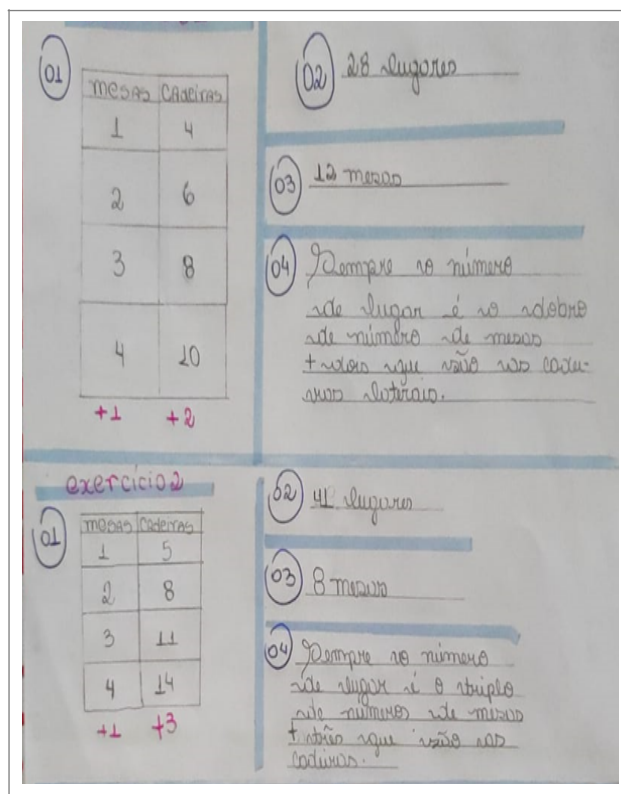 01
mesas cadeiras
1 4
2 6
3 8
4 10
+1 +2
02 28 lugares
03 12 mesas
04 Sempre o número
de lugar é o dobro
de número de mesas
+ dois que são as cadei-
ras laterais.
exercício 2
01
mesas Cadeiras
1 5
2 8
3 11
4 14
+1 +3
02 41 lugares
03 8 mesas
04 Sempre o número
de lugar é o triplo
de números de mesas
+ três que são as
cadeiras.